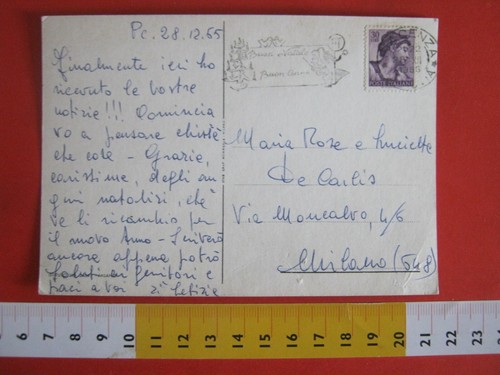 Pc. 28.12.65
Finalmente ieri ho
ricevuto le vostre
notizie!!! Comincia
vo a pensare chissà
che cosa - Grazie,
carissime, degli au
guri natalizi, che
ve li ricambio per
il nuovo Anno - Scriverò
ancora appena potrò
Saluti ai genitori e
baci a voi zi Letizia
POSTE ITALIANE
Maria Rosa e Luciette
De Carlis
Via Moncalvo, 4/6
Milano (548)
6 7 8 9 10 11 12 13 14 15 16 17 18 19 20 21 22 23 24